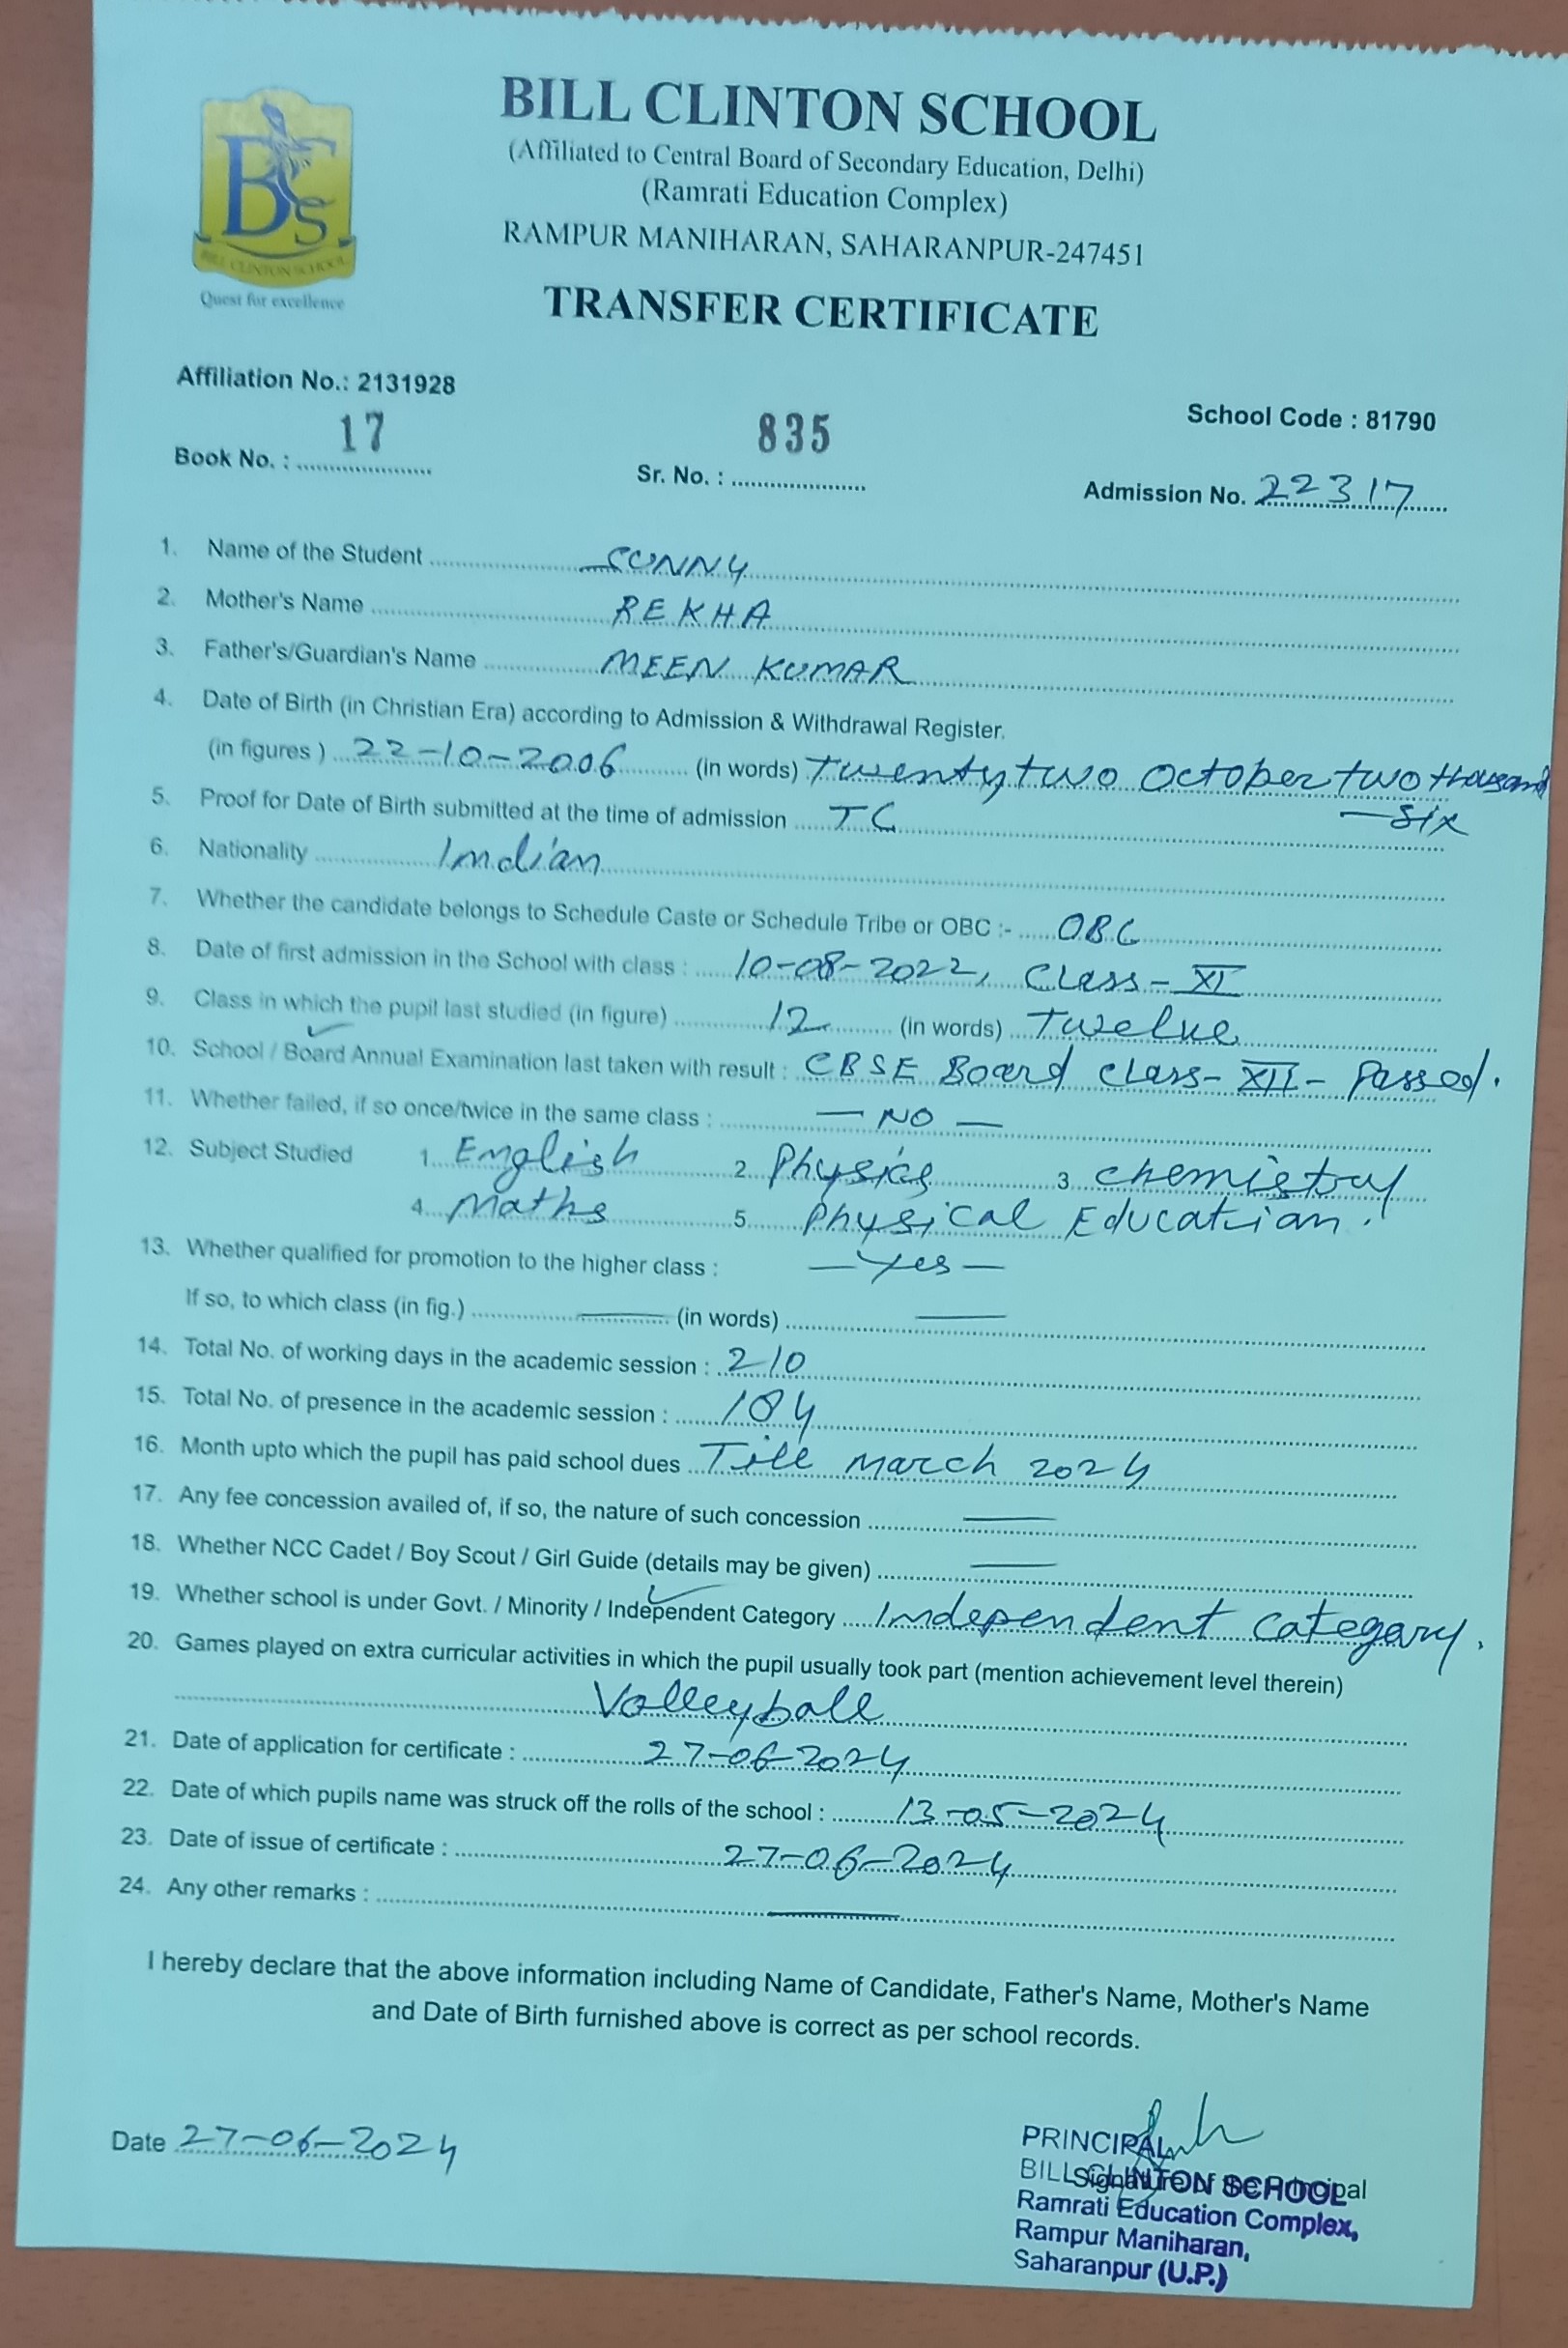 BILL CLINTON SCHOOL
(Affiliated to Central Board of Secondary Education, Delhi)
(Ramrati Education Complex)
RAMPUR MANIHARAN, SAHARANPUR-247451
BCS
BILL CLINTON SCHOOL
Quest for excellence
TRANSFER CERTIFICATE
Affiliation No.: 2131928
School Code : 81790
Book No. : 17 Sr. No. : 835 Admission No. 22317
1. Name of the Student SUNNY
2. Mother's Name REKHA
3. Father's/Guardian's Name MEEN KUMAR
4. Date of Birth (in Christian Era) according to Admission & Withdrawal Register.
(in figures ) 22-10-2006 (in words) Twenty two October two thousand
— six
5. Proof for Date of Birth submitted at the time of admission TC
6. Nationality Indian
7. Whether the candidate belongs to Schedule Caste or Schedule Tribe or OBC :- OBC
8. Date of first admission in the School with class : 10-08-2022, Class - XI
9. Class in which the pupil last studied (in figure) 12 (in words) Twelve
10. School / Board Annual Examination last taken with result : CBSE Board Class - XII - Passed.
11. Whether failed, if so once/twice in the same class : — NO —
12. Subject Studied 1. English 2. Physics 3. Chemistry
4. Maths 5. Physical Education.
13. Whether qualified for promotion to the higher class : — Yes —
If so, to which class (in fig.) — (in words) —
14. Total No. of working days in the academic session : 210
15. Total No. of presence in the academic session : 184
16. Month upto which the pupil has paid school dues Till March 2024
17. Any fee concession availed of, if so, the nature of such concession —
18. Whether NCC Cadet / Boy Scout / Girl Guide (details may be given) —
19. Whether school is under Govt. / Minority / Independent Category Independent Category.
20. Games played on extra curricular activities in which the pupil usually took part (mention achievement level therein)
Volleyball
21. Date of application for certificate : 27-06-2024
22. Date of which pupils name was struck off the rolls of the school : 13-05-2024
23. Date of issue of certificate : 27-06-2024
24. Any other remarks : —
I hereby declare that the above information including Name of Candidate, Father's Name, Mother's Name
and Date of Birth furnished above is correct as per school records.
Date 27-06-2024
PRINCIPAL
Signature of the Principal
BILL CLINTON SCHOOL
Ramrati Education Complex,
Rampur Maniharan,
Saharanpur (U.P.)